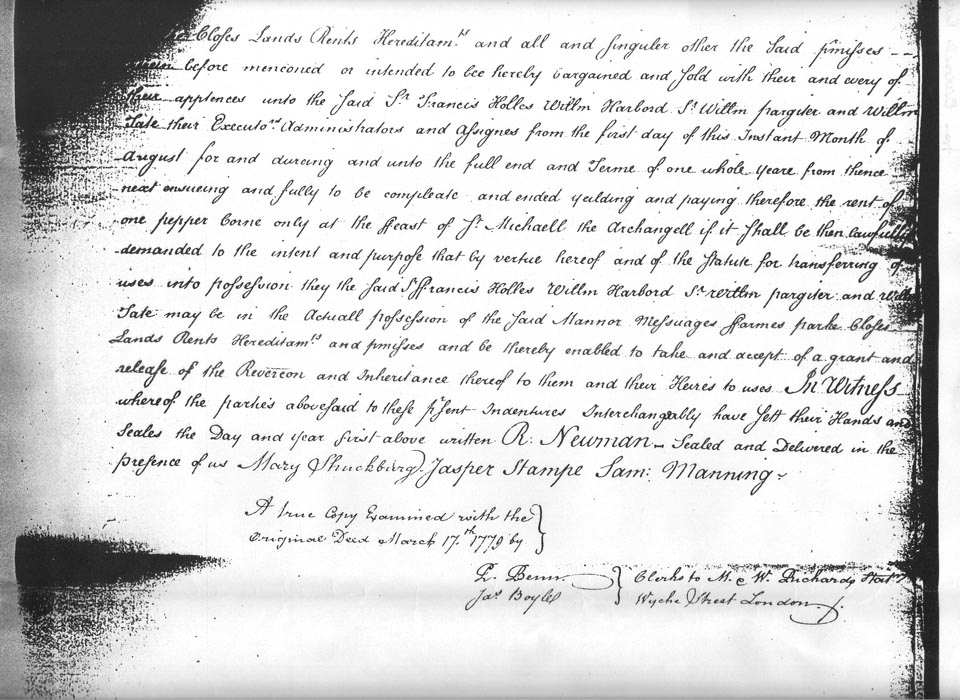 Closes Lands Rents Hereditam.ts and all and singuler other the Said p'misses --
before mencõned or intended to bee hereby bargained and sold with their and every of
their apptences unto the said S.r Francis Holles Willm Harbord S.r Willm pargiter and Willm
Tate their Executo.rs Administrators and Assignes from the first day of this Instant Month of
August for and dureing and unto the full end and Terme of one whole yeare from thence
next ensueing and fully to be compleate and ended yealding and paying therefore the rent of
one pepper Corne only at the ffeast of S.t Michaell the Archangell if it shall be then lawfully
demanded to the intent and purpose that by vertue hereof and of the Statute for transferring of
uses into possession they the said S.r ffrancis Holles Willm Harbord S.r Willm pargiter and Willm
Tate may be in the Actuall possession of the said Mannor Messuages ffarmes parke Closes
Lands Rents Hereditam.ts and p'misses and be thereby enabled to take and accept of a grant and
release of the Revercon and Inheritance thereof to them and their Heires to uses In Witness
whereof the parties abovesaid to these p'sent Indentures Interchangeably have sett their Hands and
Seales the Day and year first above written R: Newman - Sealed and Delivered in the
presence of us Mary Shuckburg. Jasper Stampe Sam: Manning -
A true Copy Examined with the
Original Deed March 17.th 1779 by
Benn Clerks to M. & W. Richards
Jas Boyles Wyche Street London